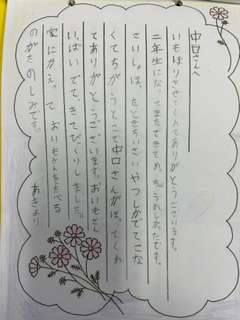 中口さんへ
いもほりさせてくれてありがとうございます。
二年生になってまたできてめっちゃうれしかったです。
さいしょは、たときちいさいやつしかでてこな
くてちがうとこで中口さんがほってくれ
てありがとうございます。おいもさん
いっぱいでてきてびっくりしました。
家にかえっておいもさんをたべる
のがたのしみです。
あきより